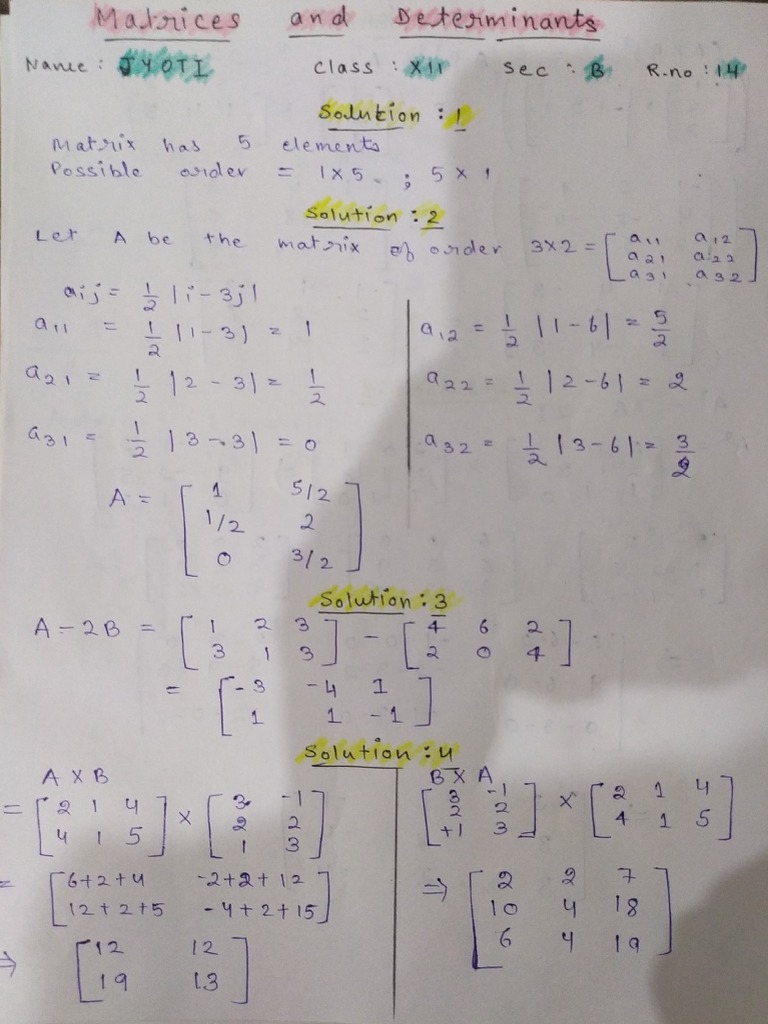 Matrices and Determinants
Name : JYOTI Class : XII Sec : B R.no : 14
Solution : 1
Matrix has 5 elements
Possible order = 1 x 5 ; 5 x 1
Solution : 2
Let A be the matrix of order 3x2 = [ a11 a12
a21 a22
a31 a32 ]
aij = 1/2 |i - 3j|
a11 = 1/2 |1 - 3| = 1
a21 = 1/2 |2 - 3| = 1/2
a31 = 1/2 |3 - 3| = 0
a12 = 1/2 |1 - 6| = 5/2
a22 = 1/2 |2 - 6| = 2
a32 = 1/2 |3 - 6| = 3/2
A = [ 1 5/2
1/2 2
0 3/2 ]
Solution : 3
A - 2B = [ 1 2 3 ] - [ 4 6 2 ]
[ 3 1 3 ] [ 2 0 4 ]
= [ -3 -4 1
1 1 -1 ]
Solution : 4
A X B
= [ 2 1 4 ] x [ 3 -1 ]
[ 4 1 5 ] [ 2 2 ]
[ 1 3 ]
= [ 6+2+4 -2+2+12
12+2+5 -4+2+15 ]
⇒ [ 12 12
19 13 ]
B X A
[ 3 -1 ] x [ 2 1 4 ]
[ 2 2 ] [ 4 1 5 ]
[ +1 3 ]
⇒ [ 2 2 7
10 4 18
6 4 19 ]